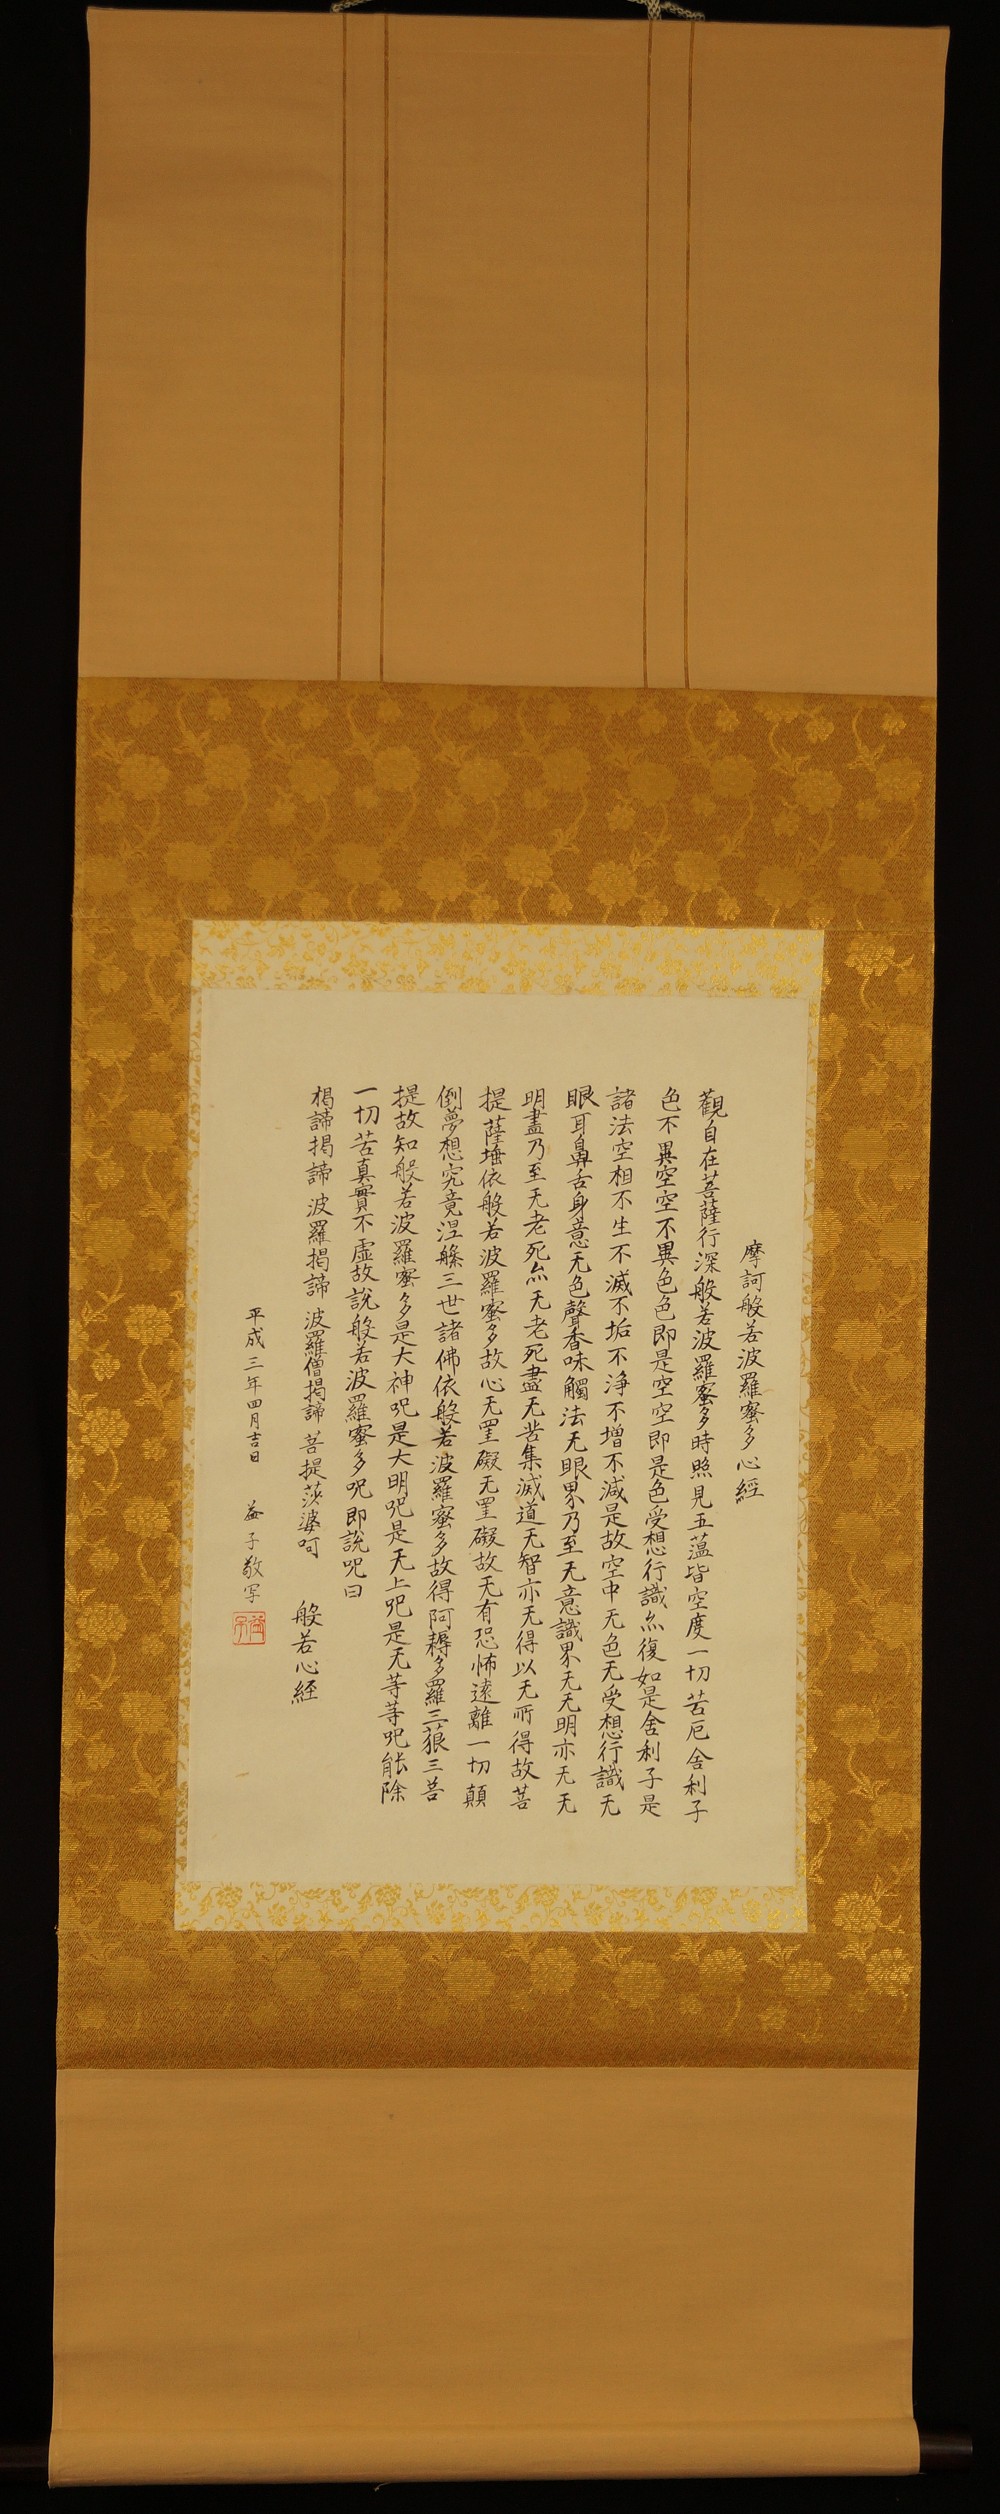 摩訶般若波羅蜜多心經
觀自在菩薩行深般若波羅蜜多時照見五蕰皆空度一切苦厄舍利子
色不異空空不異色色即是空空即是色受想行識亦復如是舍利子是
諸法空相不生不滅不垢不淨不增不減是故空中无色无受想行識无
眼耳鼻舌身意无色聲香味觸法无眼界乃至无意識界无无明亦无无
明盡乃至无老死亦无老死盡无苦集滅道无智亦无得以无所得故菩
提薩埵依般若波羅蜜多故心无罣礙无罣礙故无有恐怖遠離一切顛
倒夢想究竟涅槃三世諸佛依般若波羅蜜多故得阿耨多羅三藐三菩
提故知般若波羅蜜多是大神咒是大明咒是无上咒是无等等咒能除
一切苦真實不虛故說般若波羅蜜多咒即說咒曰
揭諦揭諦 波羅揭諦 波羅僧揭諦 菩提莎婆呵 般若心経
平成三年四月吉日 益子敬写
益子